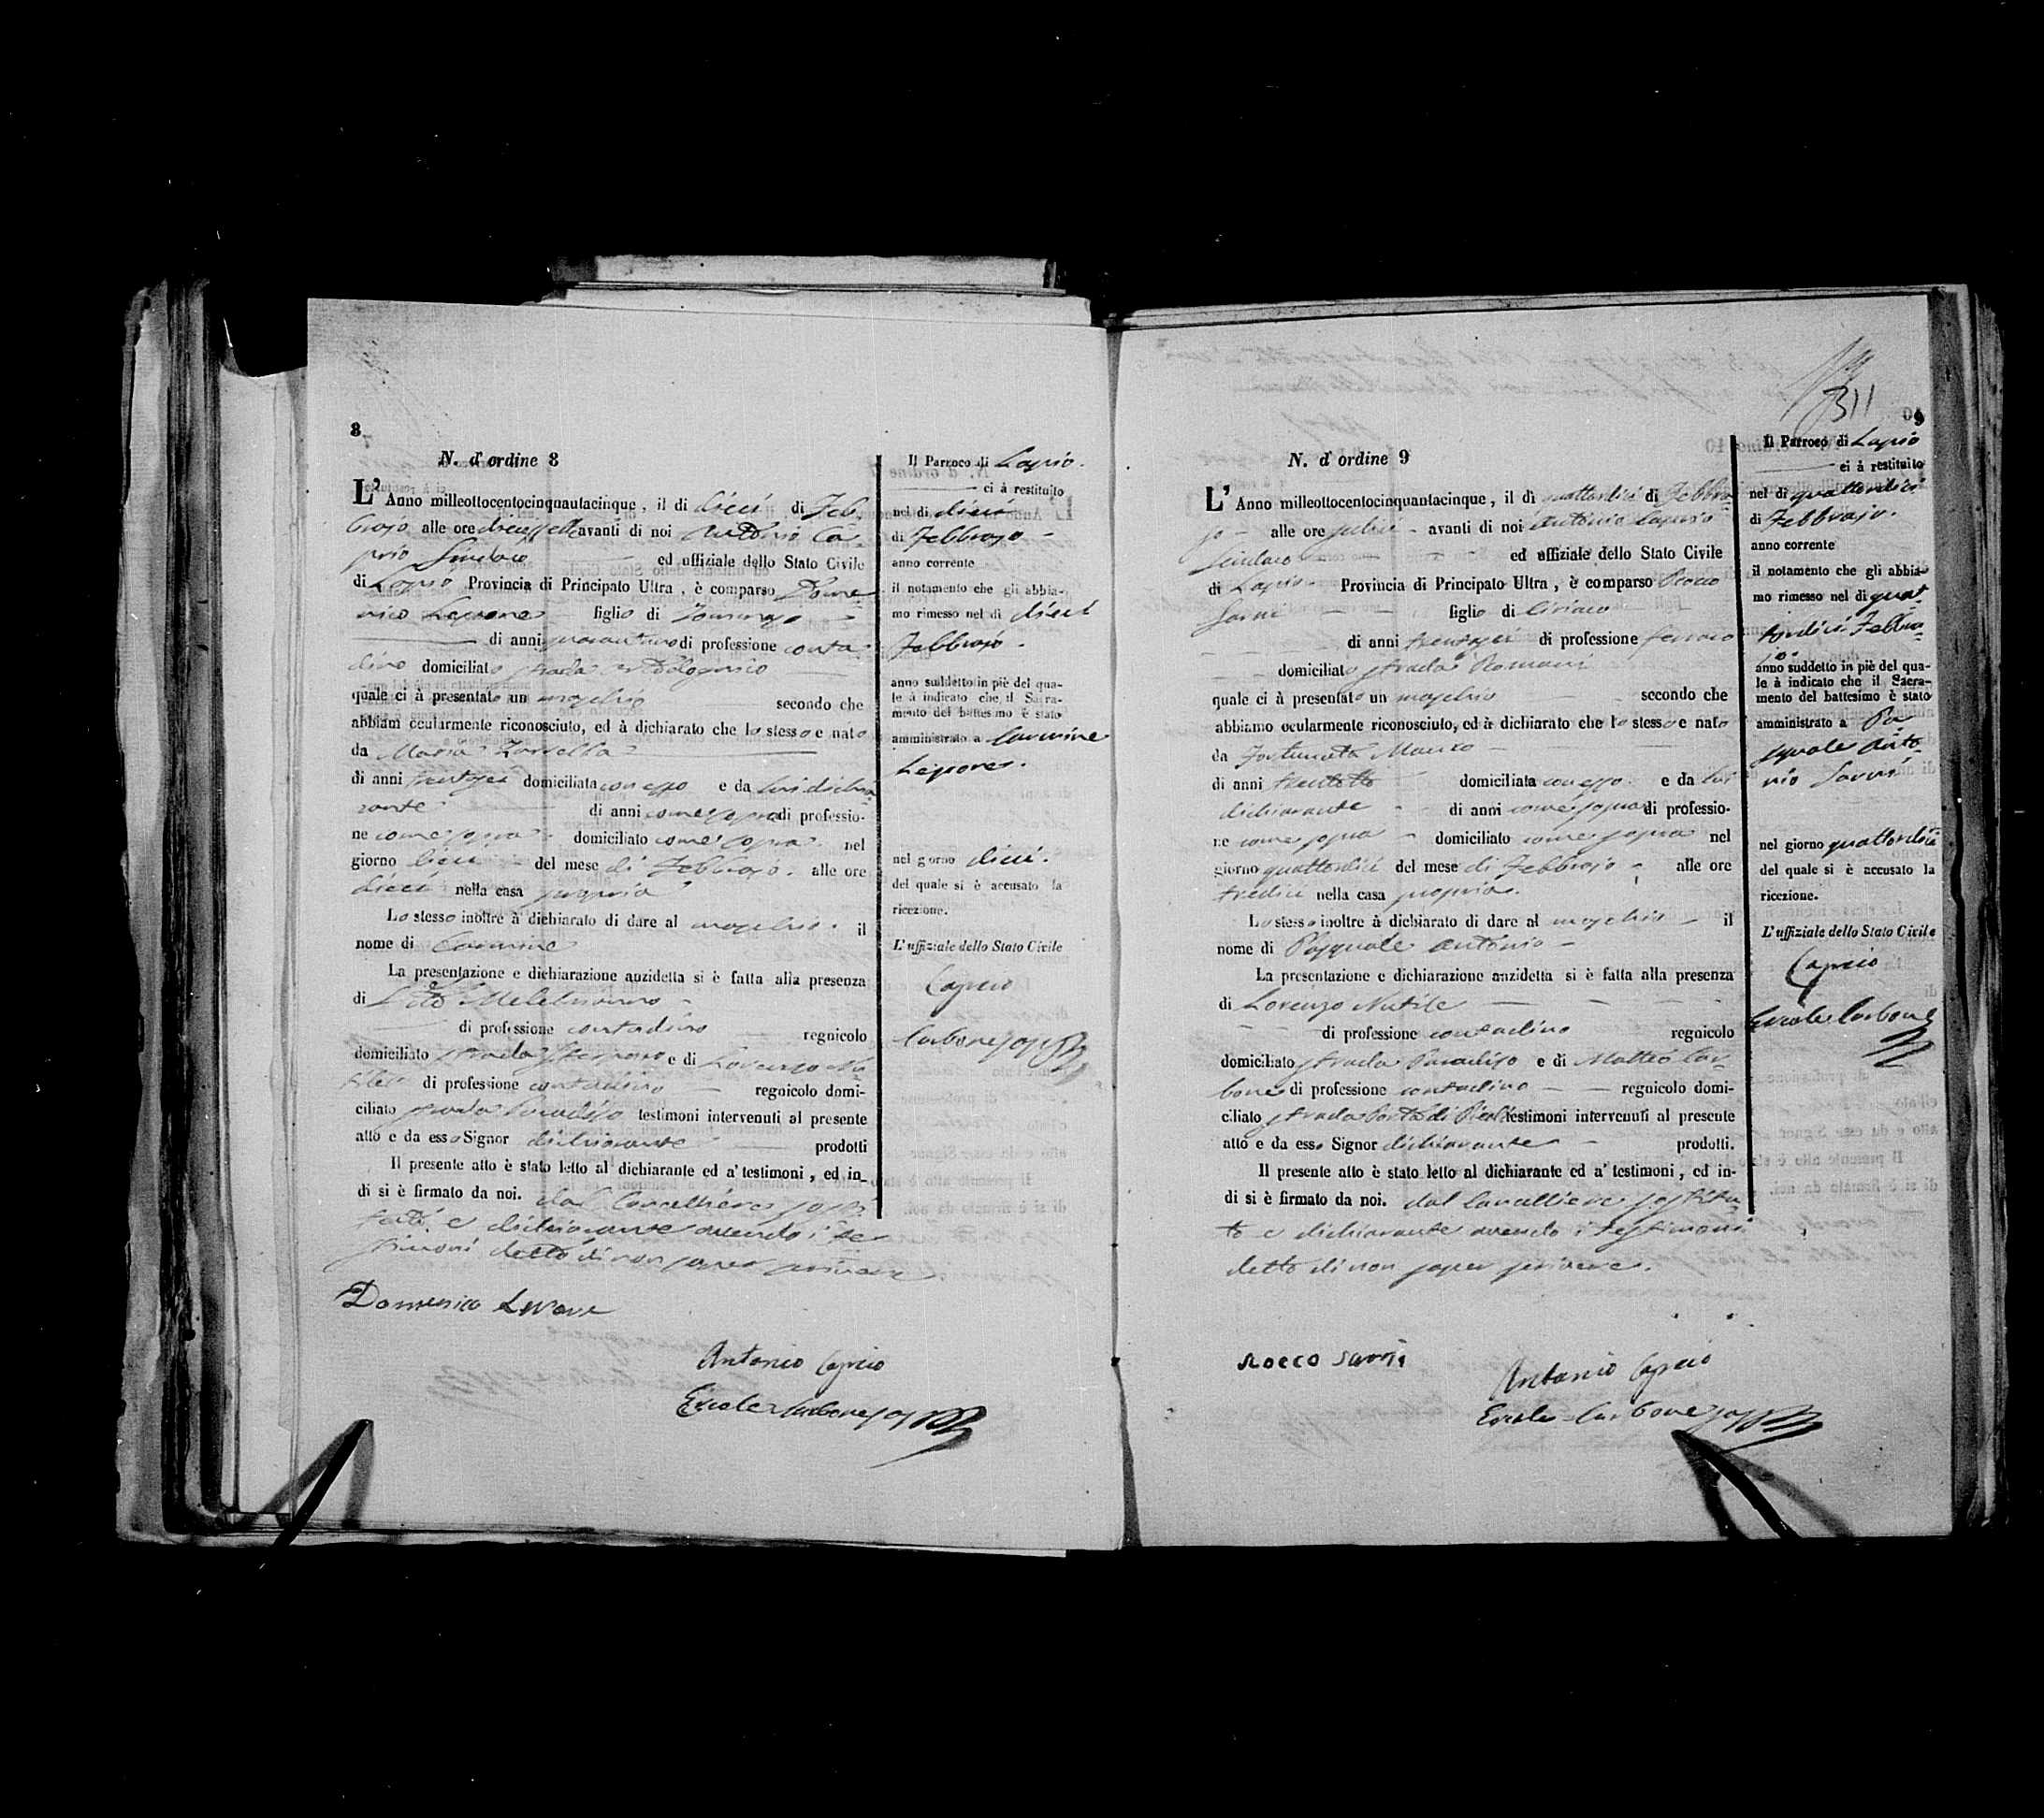 8
N. d' ordine 8
L' Anno milleottocentocinquantacinque, il di dieci di Feb-
brajo alle ore diecissette avanti di noi Antonio Ca-
prio Sindaco ed uffiziale dello Stato Civile
di Lapio Provincia di Principato Ultra, è comparso Dome-
nico Lepore figlio di
di anni quarantuno di professione conta
dino domiciliato strada
quale ci à presentato un maschio secondo che
abbiam ocularmente riconosciuto, ed à dichiarato che lo stesso e nato
da Maria Zarrella
di anni trentasei domiciliata con esso e da lui dichia-
rante di anni come sopra di professio-
ne come sopra domiciliato come sopra nel
giorno dieci del mese di Febbrajo. alle ore
dieci nella casa propria
Lo stesso inoltre à dichiarato di dare al maschio. il
nome di Carmine
La presentazione e dichiarazione anzidetta si è fatta alla presenza
di Vito
di professione contadino regnicolo
domiciliato strada e di Lorenzo Nu-
tile di professione contadino regnicolo domi-
ciliato strada Paradiso testimoni intervenuti al presente
atto e da esso Signor dichiarante prodotti
Il presente atto è stato letto al dichiarante ed a' testimoni, ed in_
di si è firmato da noi. dal Cancelliere sosti
tuto e dichiarante avendo i te-
stimoni detto di non saper scrivere
Domenico Lepore
Antonio Caprio
Ercole Carbone
Il Parroco di Lapio.
ci à restituito
nel di dieci
di Febbrajo -
anno corrente
il notamento che gli abbia-
mo rimesso nel di dieci
Febbrajo.
anno suddetto in piè del qua-
le à indicato che il Sacra-
mento del battesimo è stato
amministrato a Carmine
Lepore.
nel giorno dieci.
del quale si è accusato la
ricezione.
L'uffiziale dello Stato Civile
Caprio
Carbone
311
9
N. d' ordine 9
L' Anno milleottocentocinquantacinque, il di quattordici di Febbra-
jo - alle ore sedici - avanti di noi Antonio Caprio
Sindaco ed uffiziale dello Stato Civile
di Lapio - Provincia di Principato Ultra, è comparso Rocco
figlio di Ciriaco
di anni trentasei di professione ferraro
domiciliato strada Romani
quale ci à presentato un maschio secondo che
abbiamo ocularmente riconosciuto, ed à dichiarato che lo stesso e nato
da Fortunata
di anni trentotto domiciliata con esso. e da lui
dichiarante di anni come sopra di professio-
ne come sopra - domiciliato come sopra nel
giorno quattordici del mese di Febbrajo - alle ore
tredici nella casa propria.
Lo stesso inoltre à dichiarato di dare al maschio - il
nome di Pasquale Antonio -
La presentazione e dichiarazione anzidetta si è fatta alla presenza
di Lorenzo Nutile
di professione contadino regnicolo
domiciliato strada Paradiso e di Matteo Car-
bone di professione contadino regnicolo domi-
ciliato strada Porta di testimoni intervenuti al presente
atto e da esso Signor dichiarante - prodotti.
Il presente atto è stato letto al dichiarante ed a' testimoni, ed in-
di si è firmato da noi. dal Cancelliere sostitu
to e dichiarante avendo i testimoni
detto di non saper scrivere.
Rocco
Antonio Caprio
Ercole Carbone
Il Parroco di Lapio
ci à restituito
nel di quattordici
di Febbrajo.
anno corrente
il notamento che gli abbia-
mo rimesso nel di quat-
tordici Febbra-
jo.
anno suddetto in piè del qua-
le à indicato che il Sacra-
mento del battesimo è stato
amministrato a Pa
squale Anto-
nio
nel giorno quattordici
del quale si è accusato la
ricezione.
L'uffiziale dello Stato Civile
Caprio
Ercole Carbone